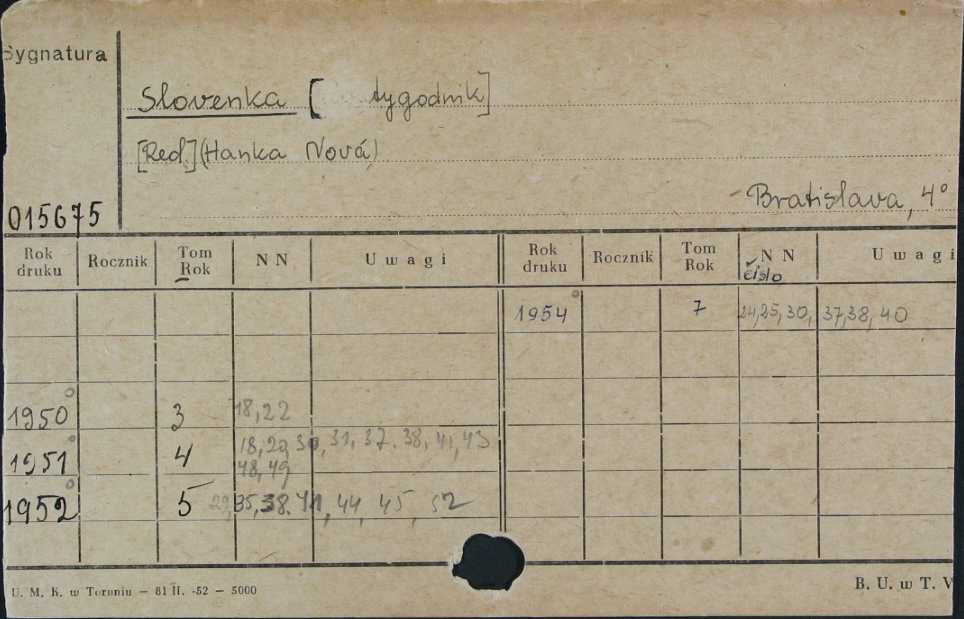 Sygnatura
Slovenka [ tygodnik]
[Red.] (Hanka Nová)
Bratislava, 4°
015675
Rok druku Rocznik Tom Rok NN Uwagi Rok druku Rocznik Tom Rok NN čislo Uwagi
1954° 7 24,25,30, 37,38,40
1950° 3 18,22
1951° 4 18,29,30,31,37.38,41,43
48,49
1952° 5 29,35,38.41,44,45,52
U. M. K. w Toruniu — 81 II. -52 — 5000
B. U. w T. V